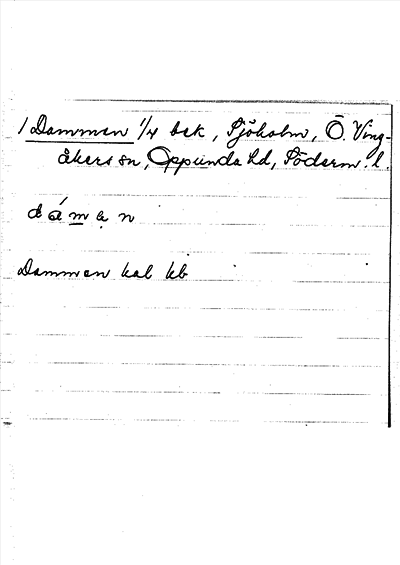 / Dammen 1/4 bsk, Sjöholm, Ö. Ving-
åkers sn, Oppunda hd, Söderm. l.
dámạn
Dammen kal kb